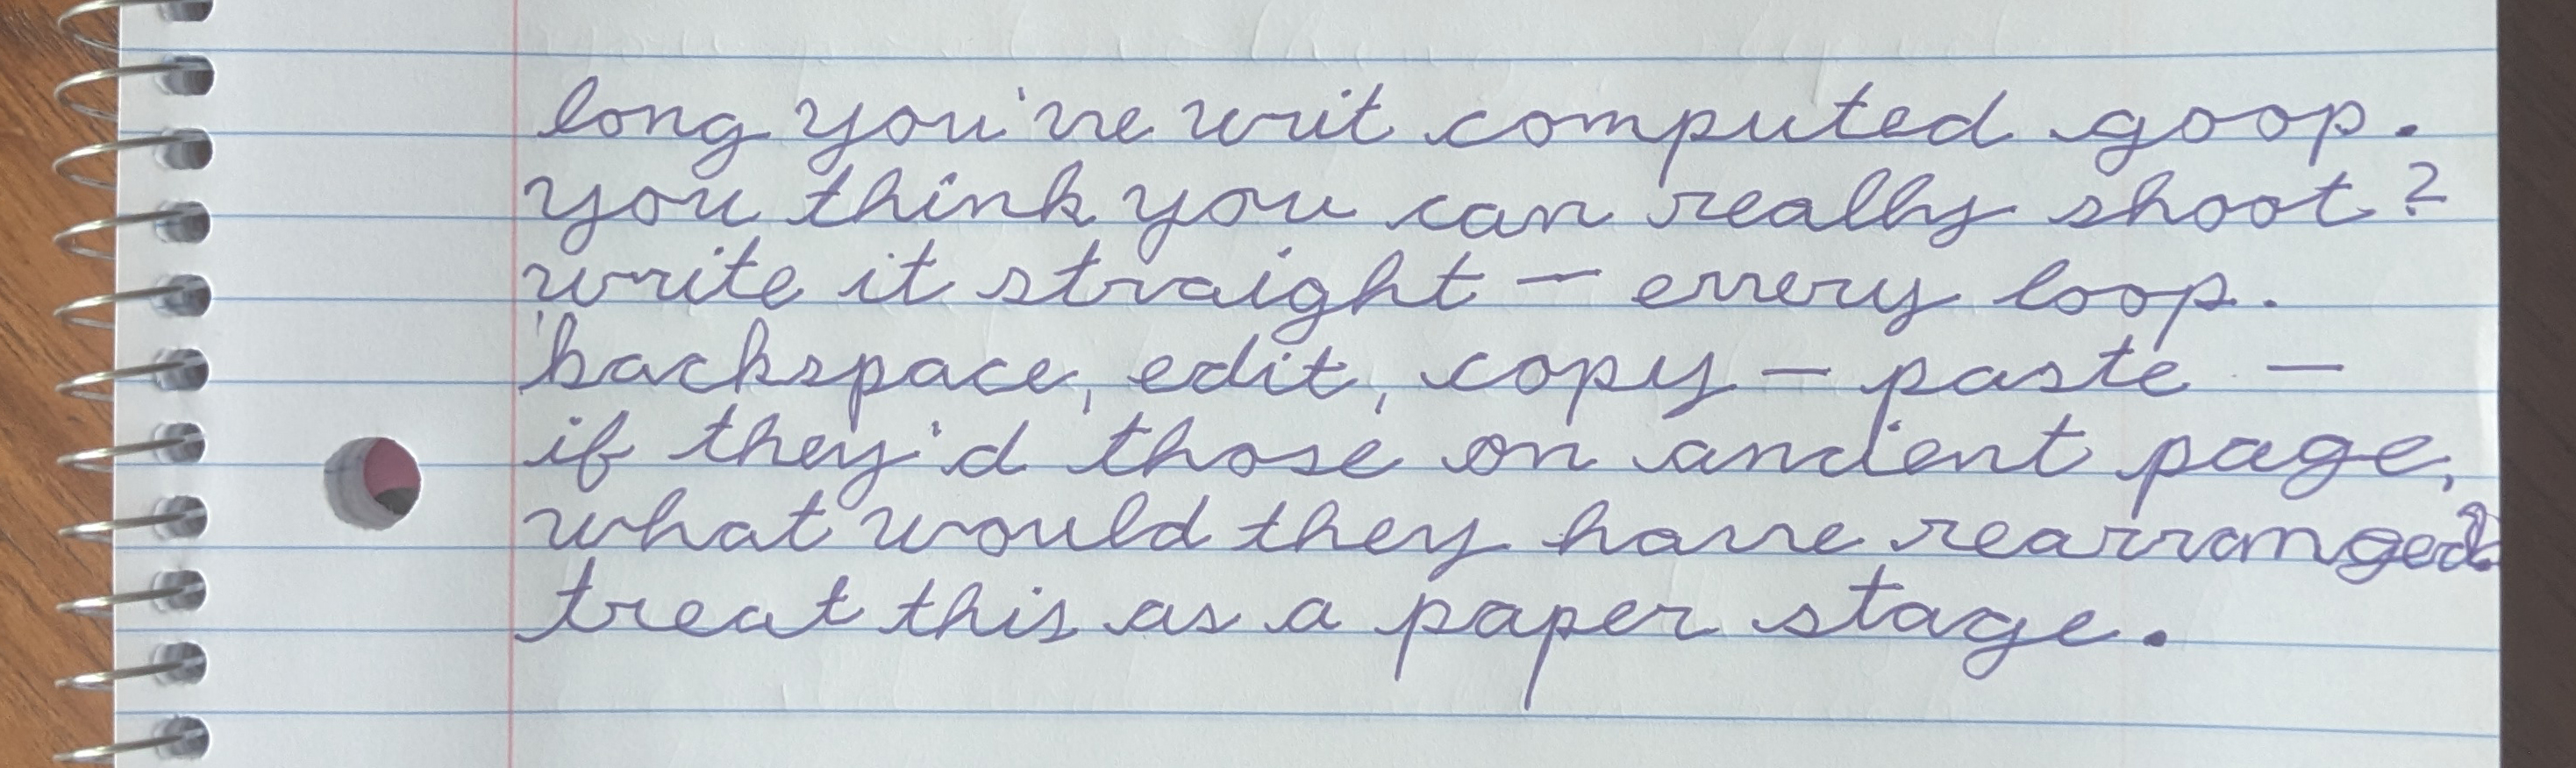 long you've writ computed goop.
you think you can really shoot?
write it straight — every loop.
backspace, edit, copy — paste —
if they'd those on ancient page,
what would they have rearranged?
treat this as a paper stage.